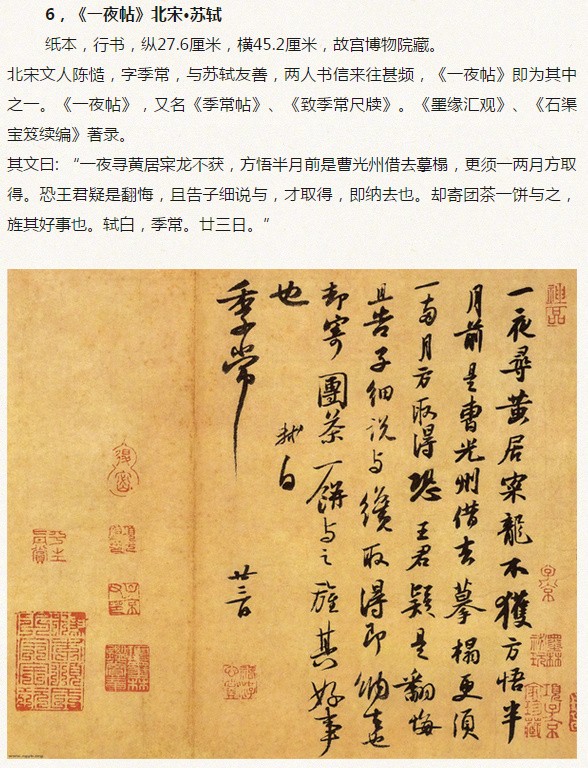 6，《一夜帖》北宋•苏轼
纸本，行书，纵27.6厘米，横45.2厘米，故宫博物院藏。
北宋文人陈慥，字季常，与苏轼友善，两人书信来往甚频，《一夜帖》即为其中
之一。《一夜帖》，又名《季常帖》、《致季常尺牍》。《墨缘汇观》、《石渠
宝笈续编》著录。
其文曰: “一夜寻黄居寀龙不获，方悟半月前是曹光州借去摹榻，更须一两月方取
得。恐王君疑是翻悔，且告子细说与，才取得，即纳去也。却寄团茶一饼与之，
旌其好事也。轼白，季常。廿三日。”
一夜尋黄居寀龍不獲方悟半
月前是曹光州借去摹榻更須
一兩月方取得恐王君疑是翻悔
且告子細說与纔取得即納去也
却寄團茶一餅与之旌其好事
也
軾白
季常
廿三日